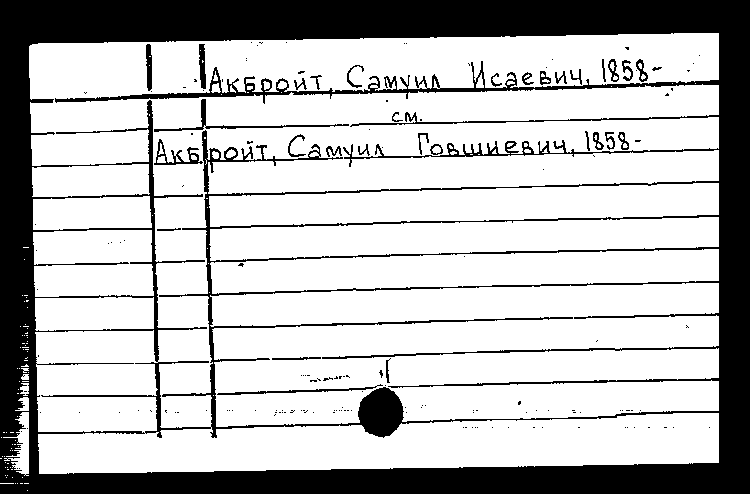 Акбройт, Самуил Исаевич, 1858-
см.
Акбройт, Самуил Говшиевич, 1858-